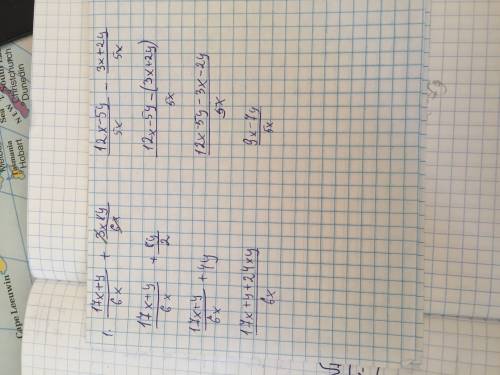 1. (17x+y)/6x + (3x8y)/6x
(17x+y)/6x + 8y/2
(17x+y)/6x + 4y
(17x+y+24xy)/6x
(12x-5y)/5x - (3x+2y)/5x
(12x-5y-(3x+2y))/5x
(12x-5y-3x-2y)/5x
(9x-7y)/5x
Cape Leeuwin
Tasmania
Hobart
Sea
NEW
Christchurch